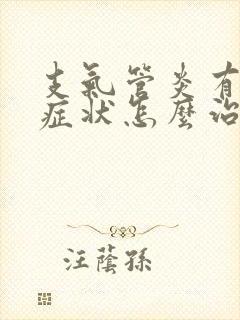 支氣管炎有
症狀怎麼治
汪蔭孫